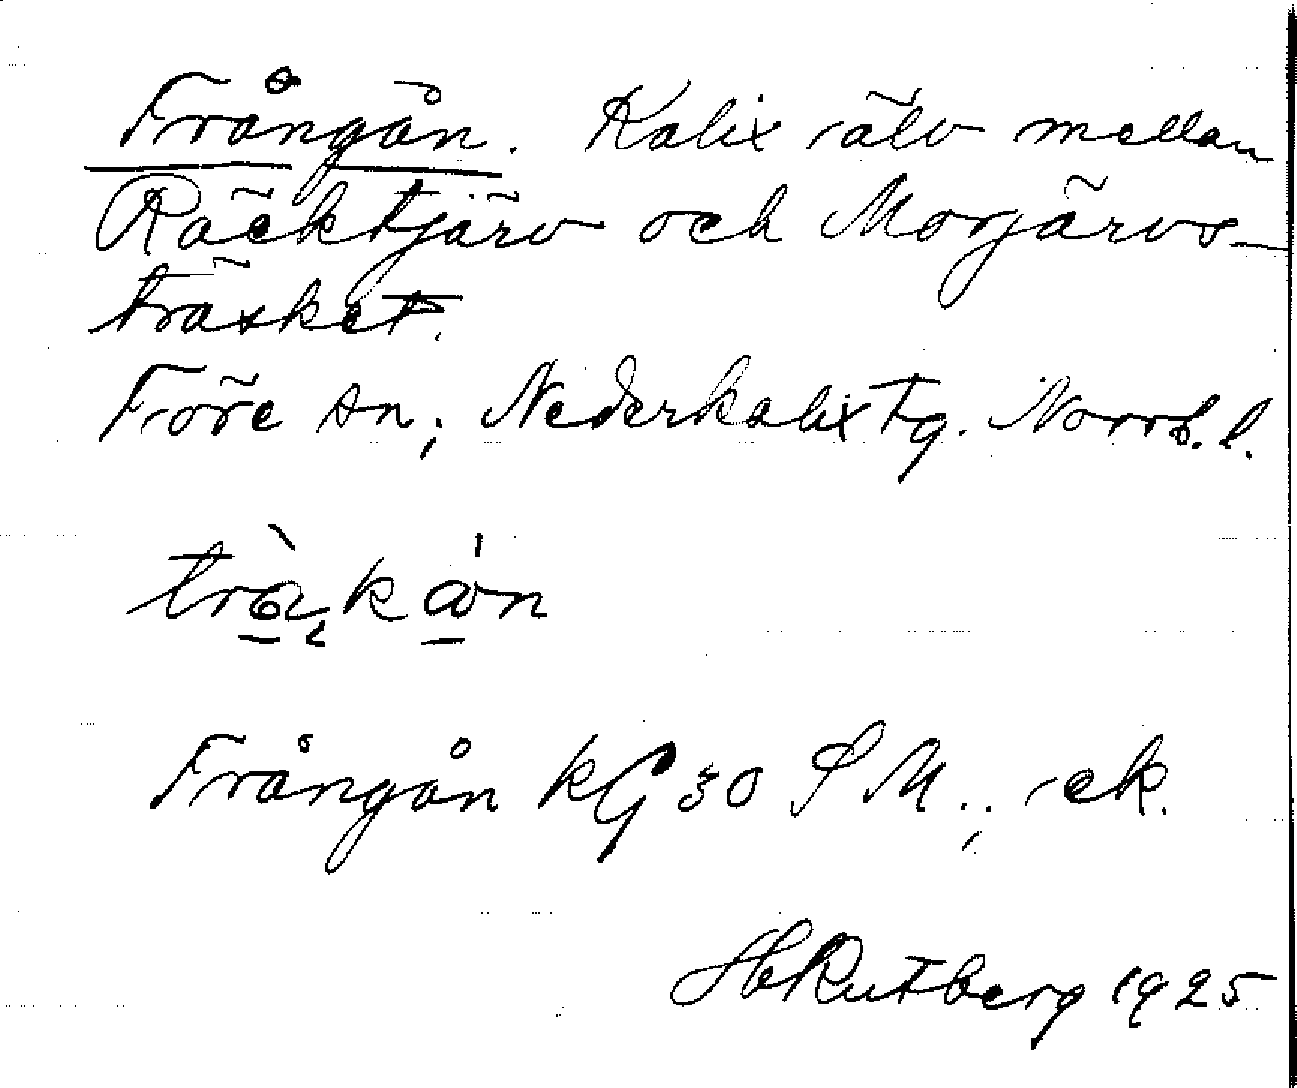 Trångån. Kalix älv mellan
Räcktjärv och Morjärvs-
träsket.
Töre sn; Nederkalix tg. Norrb. l.
Trångån kG 30 S M.; ek.
H Rutberg 1925